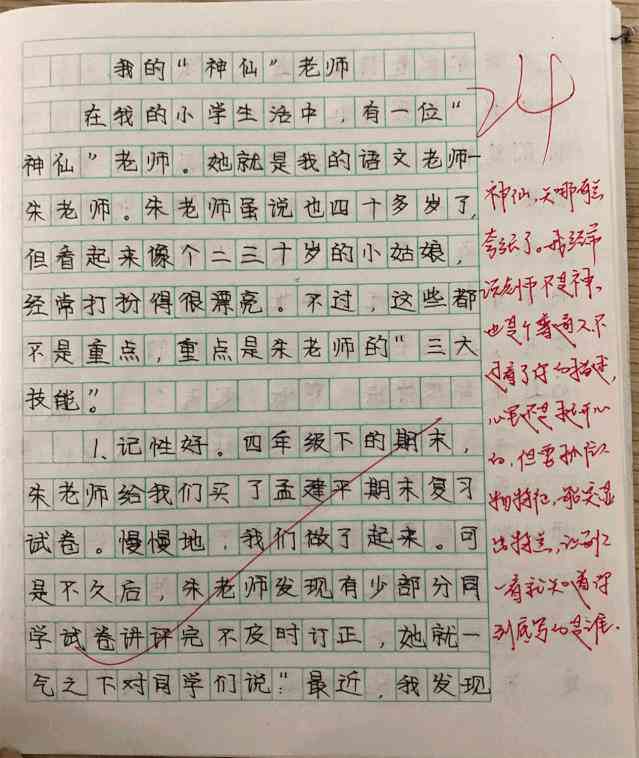 我的“神仙”老师
在我的小学生活中，有一位“
神仙”老师。她就是我的语文老师—
朱老师。朱老师虽说也四十多岁了，
但看起来像个二三十岁的小姑娘，
经常打扮得很漂亮。不过，这些都
不是重点，重点是朱老师的“三大
技能”。
1、记性好。四年级下的期末，
朱老师给我们买了孟建平期末复习
试卷。慢慢地，我们做了起来。可
是不久后，朱老师发现有少部分同
学试卷讲评完不及时订正，她就一
气之下对同学们说：“最近，我发现
24
神仙，
夸张了。我经常
说老师不是神，
也是个普通人。不
过看了你的描述，
心里还是挺开心
的，但要抓住人
物特征，突显
出特点，让别人
一看就知道你
到底写的是谁.